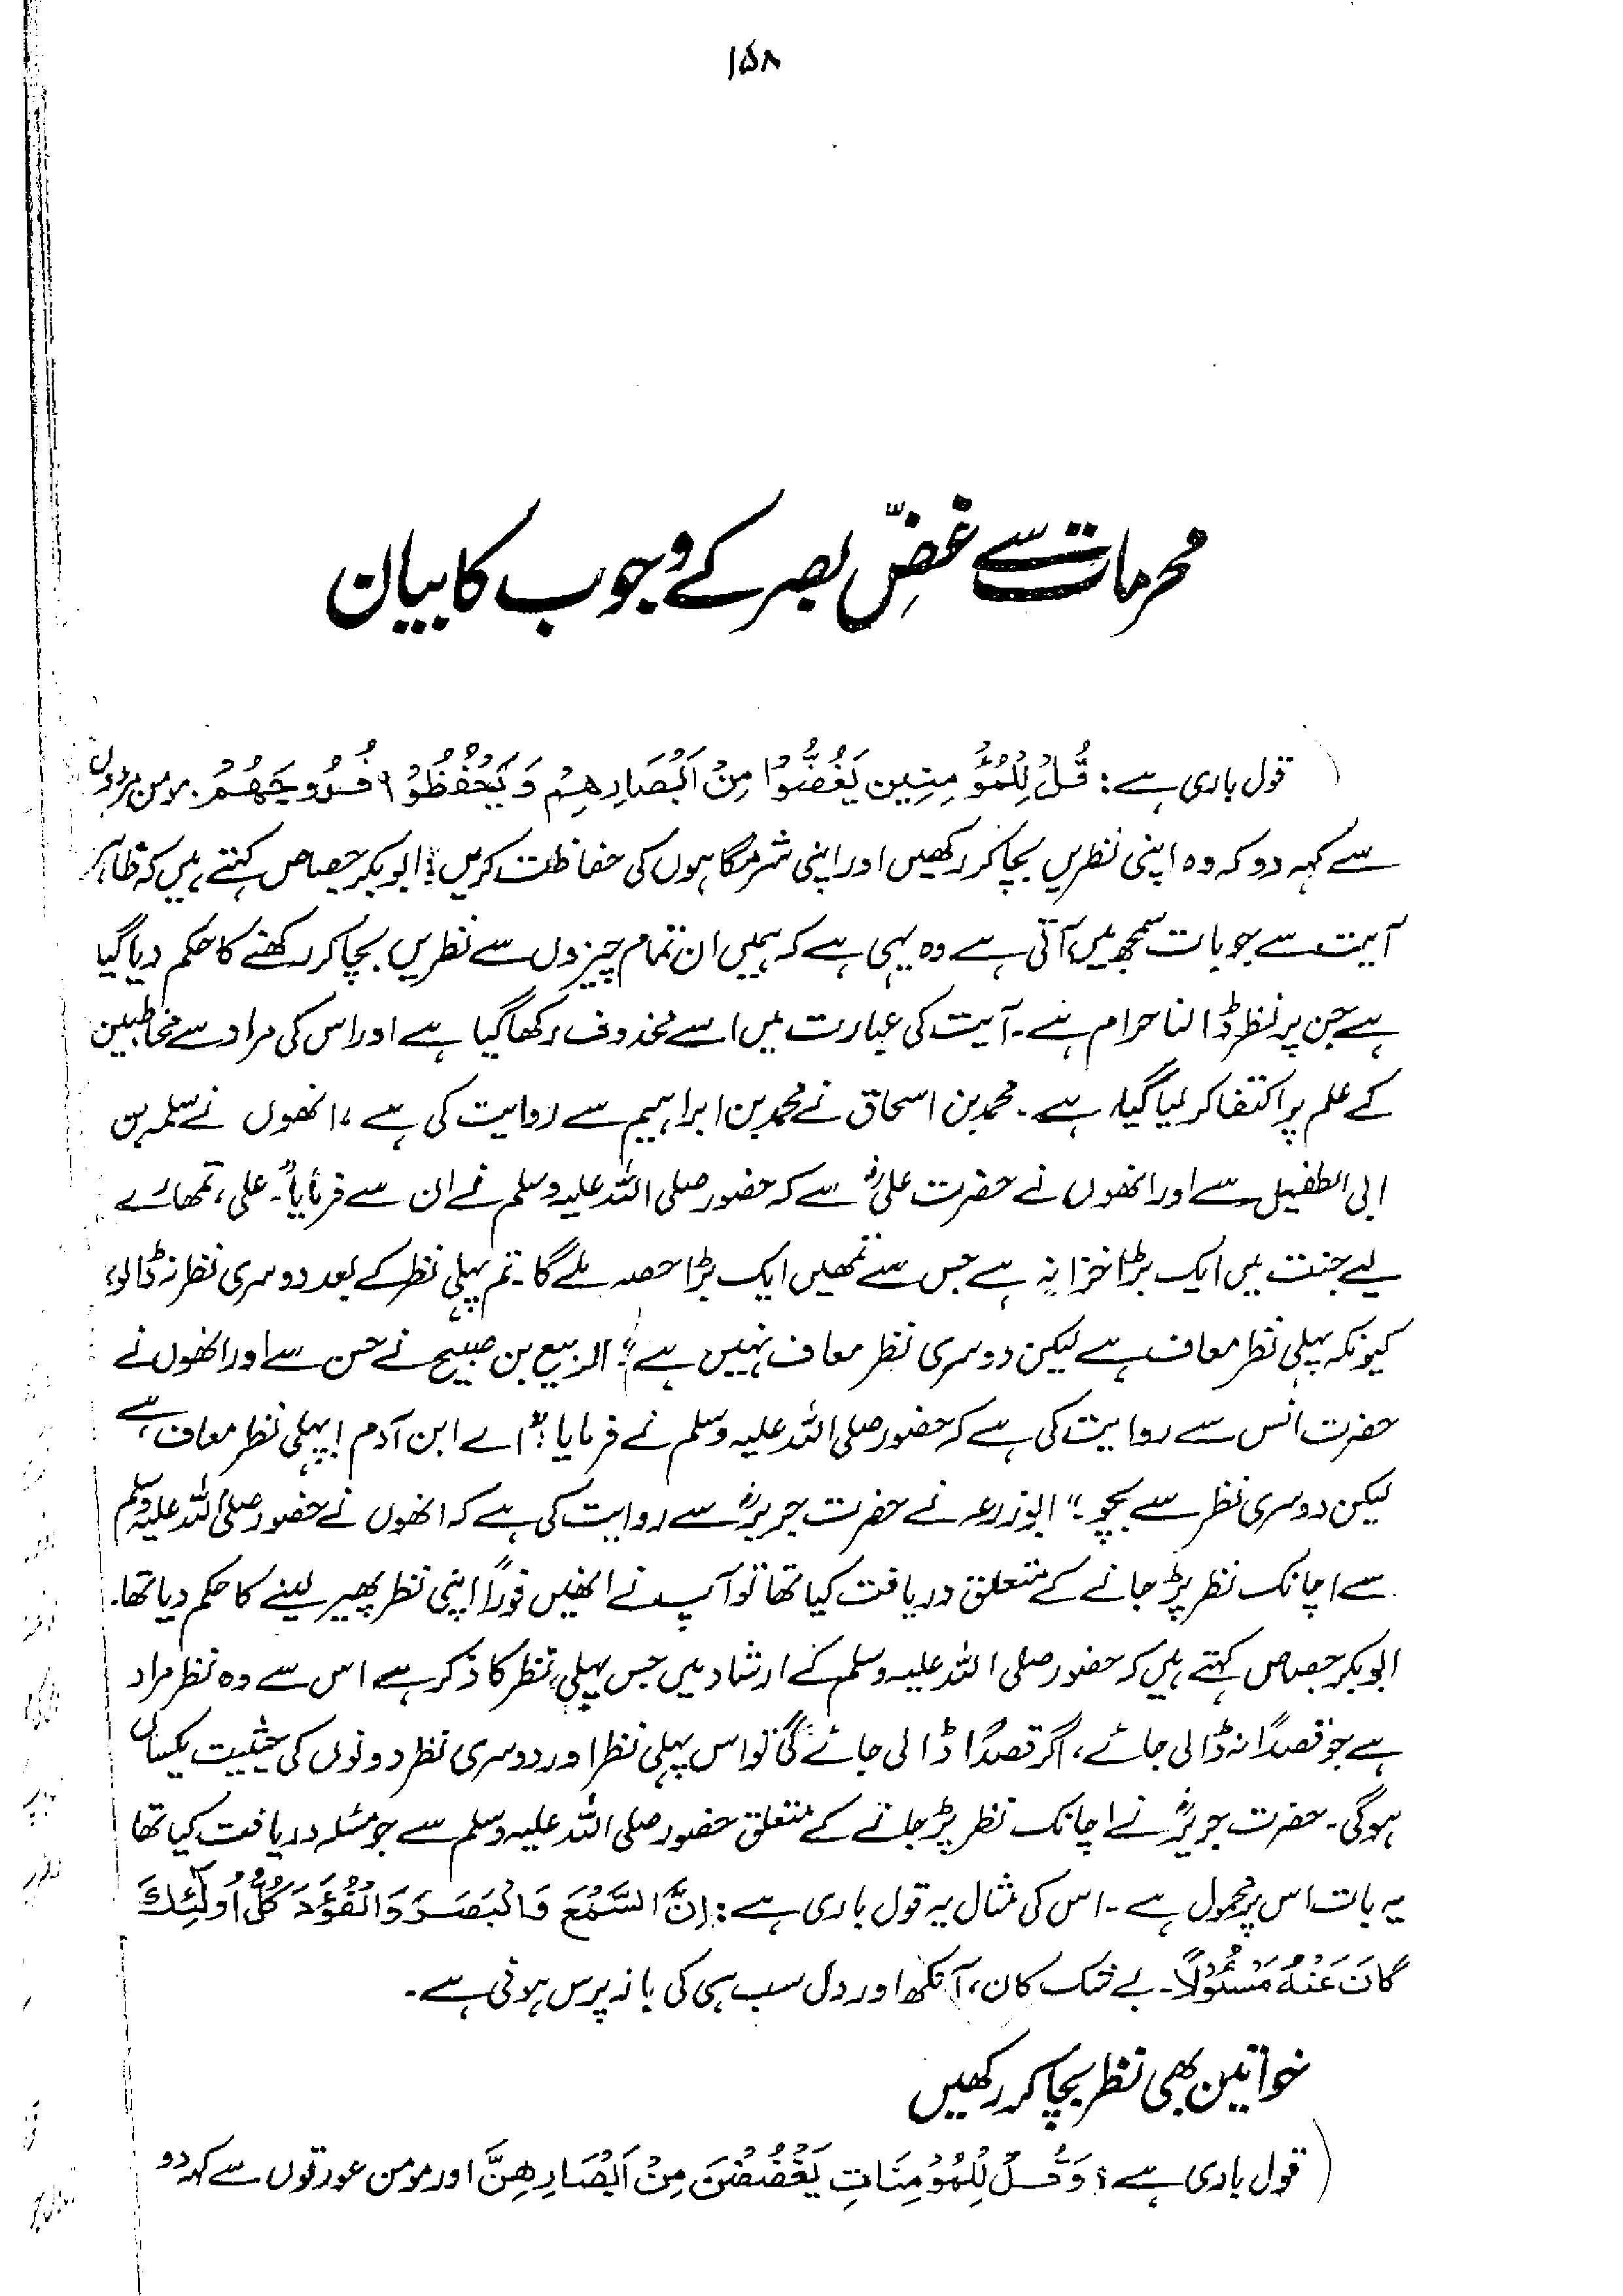 ۱۵۸
محرمات سے غضِّ بصر کے وجوب کا بیان
قول باری ہے: قُلْ لِلْمُؤْمِنِيْنَ يَغُضُّوْا مِنْ اَبْصَارِهِمْ وَيَحْفَظُوْا فُرُوْجَهُمْ. مومن مردوں
سے کہہ دو کہ وہ اپنی نظریں بچا کر رکھیں اور اپنی شرمگاہوں کی حفاظت کریں؛ ابوبکر جصاص کہتے ہیں کہ ظاہر
آیت سے جو بات سمجھ میں آتی ہے وہ یہی ہے کہ ہمیں ان تمام چیزوں سے نظریں بچا کر رکھنے کا حکم دیا گیا
ہے جن پر نظر ڈالنا حرام ہے۔ آیت کی عبارت میں اسے محذوف رکھا گیا ہے اور اس کی مراد سے مخاطبین
کے علم پر اکتفا کر لیا گیا ہے۔ محمد بن اسحاق نے محمد بن ابراہیم سے روایت کی ہے، انھوں نے سلمہ بن
ابی الطفیل سے اور انھوں نے حضرت علیؓ سے کہ حضور صلی اللہ علیہ وسلم نے ان سے فرمایا "۔ علی، تمھارے
لیے جنت میں ایک بڑا خزانہ ہے جس سے تمھیں ایک بڑا حصہ ملے گا۔ تم پہلی نظر کے بعد دوسری نظر نہ ڈالو،
کیونکہ پہلی نظر معاف ہے لیکن دوسری نظر معاف نہیں ہے؛ الربیع بن صبیح نے حسن سے اور انھوں نے
حضرت انس سے روایت کی ہے کہ حضور صلی اللہ علیہ وسلم نے فرمایا: "اے ابن آدم! پہلی نظر معاف ہے
لیکن دوسری نظر سے بچو۔" ابوزرعہ نے حضرت جریرؓ سے روایت کی ہے کہ انھوں نے حضور صلی اللہ علیہ وسلم
سے اچانک نظر پڑ جانے کے متعلق دریافت کیا تھا تو آپ نے انھیں فوراً اپنی نظر پھیر لینے کا حکم دیا تھا۔
ابوبکر جصاص کہتے ہیں کہ حضور صلی اللہ علیہ وسلم کے ارشاد میں جس پہلی نظر کا ذکر ہے اس سے وہ نظر مراد
ہے جو قصداً نہ ڈالی جائے، اگر قصداً ڈالی جائے گی تو اس پہلی نظر اور دوسری نظر دونوں کی حیثیت یکساں
ہوگی۔ حضرت جریرؓ نے اچانک نظر پڑ جانے کے متعلق حضور صلی اللہ علیہ وسلم سے جو مسئلہ دریافت کیا تھا
یہ بات اس پر محمول ہے۔ اس کی مثال یہ قول باری ہے: اِنَّ السَّمْعَ وَالْبَصَرَ وَالْفُؤَدَ كُلُّ اُولٰٓئِكَ
كَانَ عَنْهُ مَسْئُوْلاً۔ بے شک کان، آنکھ اور دل سب ہی کی باز پرس ہونی ہے۔
خواتین بھی نظر بچا کر رکھیں
قول باری ہے: وَقُلْ لِلْمُؤْمِنَاتِ يَغْضُضْنَ مِنْ اَبْصَارِهِنَّ اور مومن عورتوں سے کہہ دو